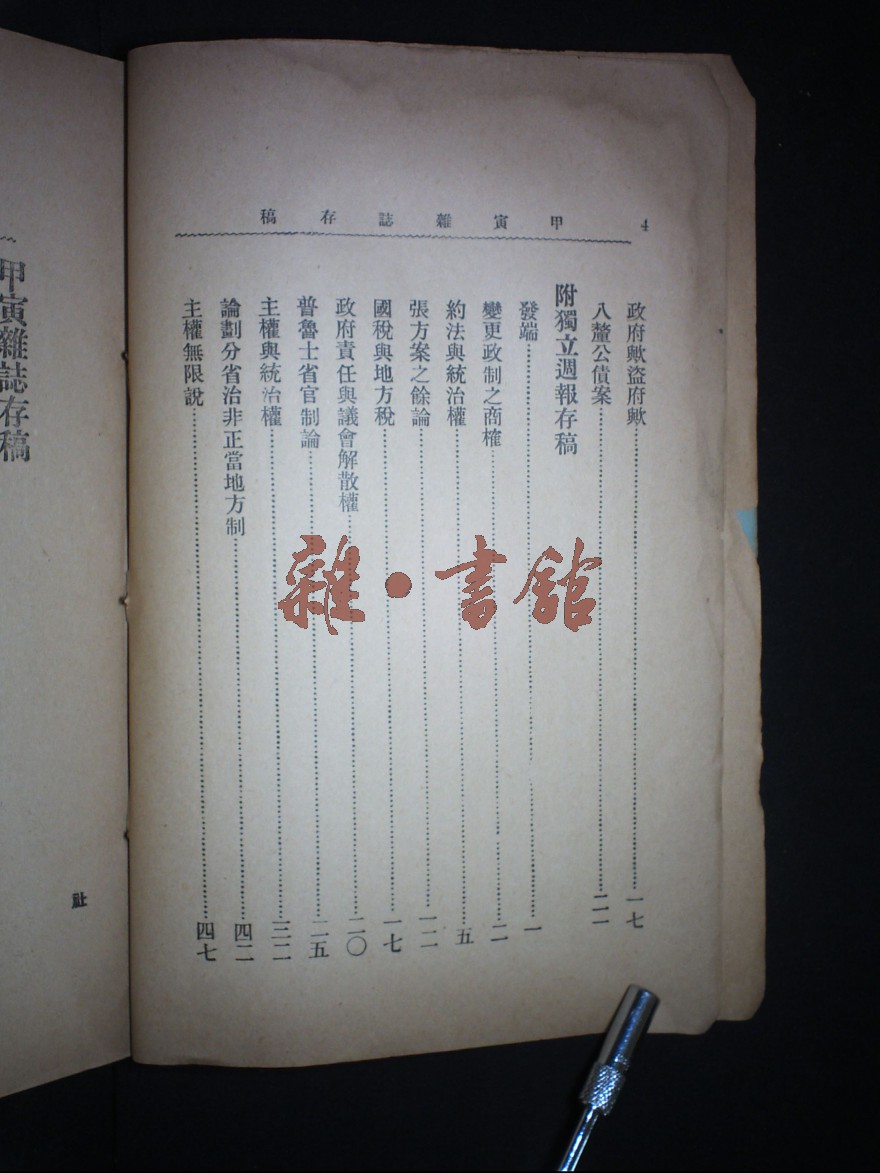 甲寅雜誌存稿 4
政府歟盜府歟……一七
八釐公債案……二一
附獨立週報存稿
發端……一
變更政制之商榷……二
約法與統治權……五
張方案之餘論……一二
國稅與地方稅……一七
政府責任與議會解散權……二〇
普魯士省官制論……二五
主權與統治權……三二
論劃分省治非正當地方制……四二
主權無限說……四七
甲寅雜誌存稿
社
雜·書館